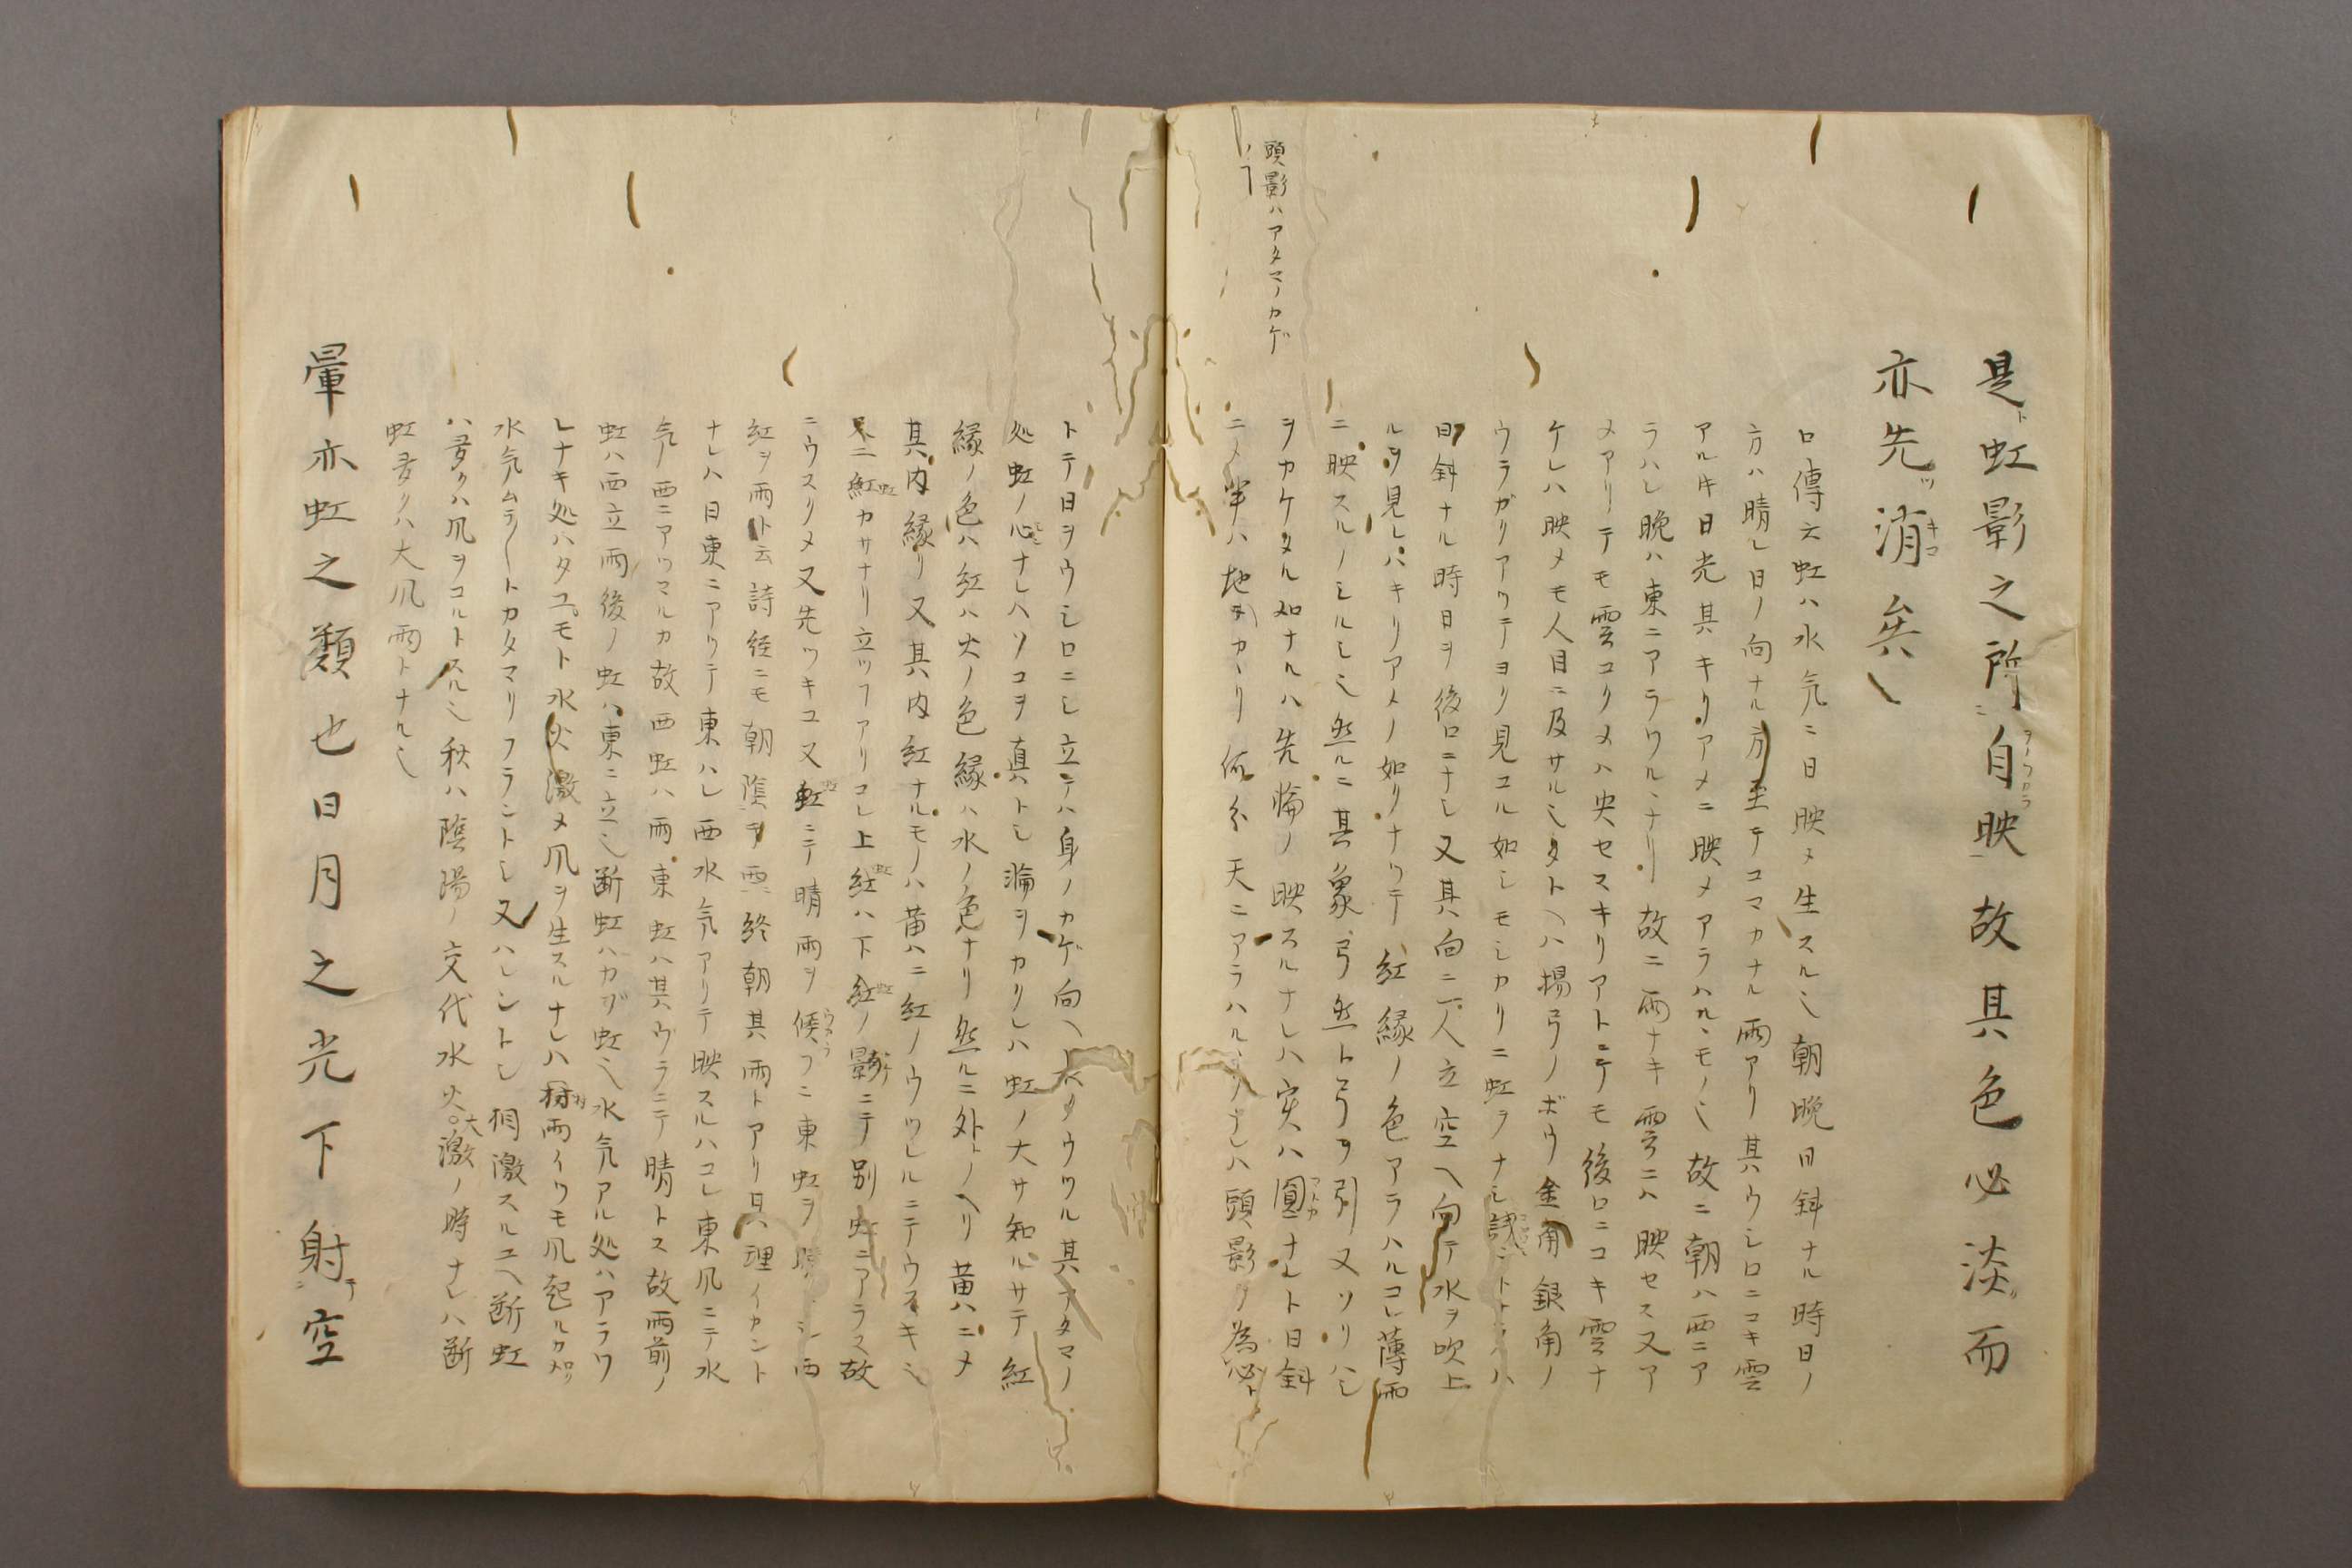 是ト虹影之所ニ自ヲーツカラ映故其色必淡ソ而
亦先ツ消キコ矣
口傳云虹ハ水気ニ日映メ生スルミ朝晩日斜ナル時日ノ
方ハ晴レ日ノ向ナル方至テコマカナル雨アリ其ウシロニコキ雲
アルキ日光其キリアメニ映メアラハルヽモノミ故ニ朝ハ西ニア
ラハレ晩ハ東ニアラワルヽナリ故ニ雨ナキ雲ニハ映セス又ア
メアリテモ雲コクメハ映セスキリアトニテモ後ロニコキ雲ナ
ケレハ映メモ人目ニ及サルミタトヘハ揚弓ノボウ金角銀角ノ
ウラガリアワテヨク見コル如シモシカリニ虹ヲナシ
日斜ナル時日ヲ後ロニナシ又其向ニ一人立空ヘ向テ水ヲ吹上
ルヲ見レハキリアメノ如クナツテ紅緑ノ色アラハルコレ薄雨
ニ映スルノシルシミ然ルニ其象弓然ト弓ヲ引又ソリハシ
ヲカケタル如ナルハ先輪ノ映スルナレハ実ハ圓マトカナレト日斜
ニメ半ハ地カヽリ何分天ニアラハルヽナレハ頭影ヲ為必ト
頭影ハアタマノカゲ
ノヿ
トテ日ヲウシロニシ立テハ身ノカゲ向ヘ ウツル其アタマノ
処虹ノ心ナレハソコヲ真トシ淪ヲカリレハ虹ノ大サ知ルサテ紅
緑ノ色ハ紅ハ火ノ色緑ハ水ノ色ナリ然ルニ外トノヘリ黄ハニメ
其内緑リ又其内紅ナルモノハ黄ハニ紅ノウツレルニテウスキミ
又ニ紅虹カサナリ立ツヿアリコレ上紅虹ハ下紅虹ノ影ニテ別虹ニアラス故
ニウスクメ又先ツキユ又虹ニテ晴雨ヲ候ウカヽウフニ東虹ヲ シ西
紅ヲ雨ト云詩経ニモ朝隮于西終朝其雨トアリ具理イカント
ナレハ日東ニアツテ東ハレ西水気アリテ映スルハコレ東風ニテ水
気ノ西ニアツマルカ故西虹ハ雨東虹ハ其ウラニテ晴トス故雨前ノ
虹ハ西立雨後ノ虹ハ東ニ立ミ断虹ハカガ虹ミ水気アル処ハアラワ
レナキ処ハタユモト水火激メ風ヲ生スルナレハ 雨イツモ風起ルカ如ク
水気ムラ〱トカタマリフラントシ又ハレントシ相激スルユヘ断虹
ハ多クハ風ヲコルトスルミ秋ハ陰陽ノ交代水火大激ノ時ナレハ断
虹多クハ大風雨トナルミ
暈亦虹之類也日月之光下射テ空